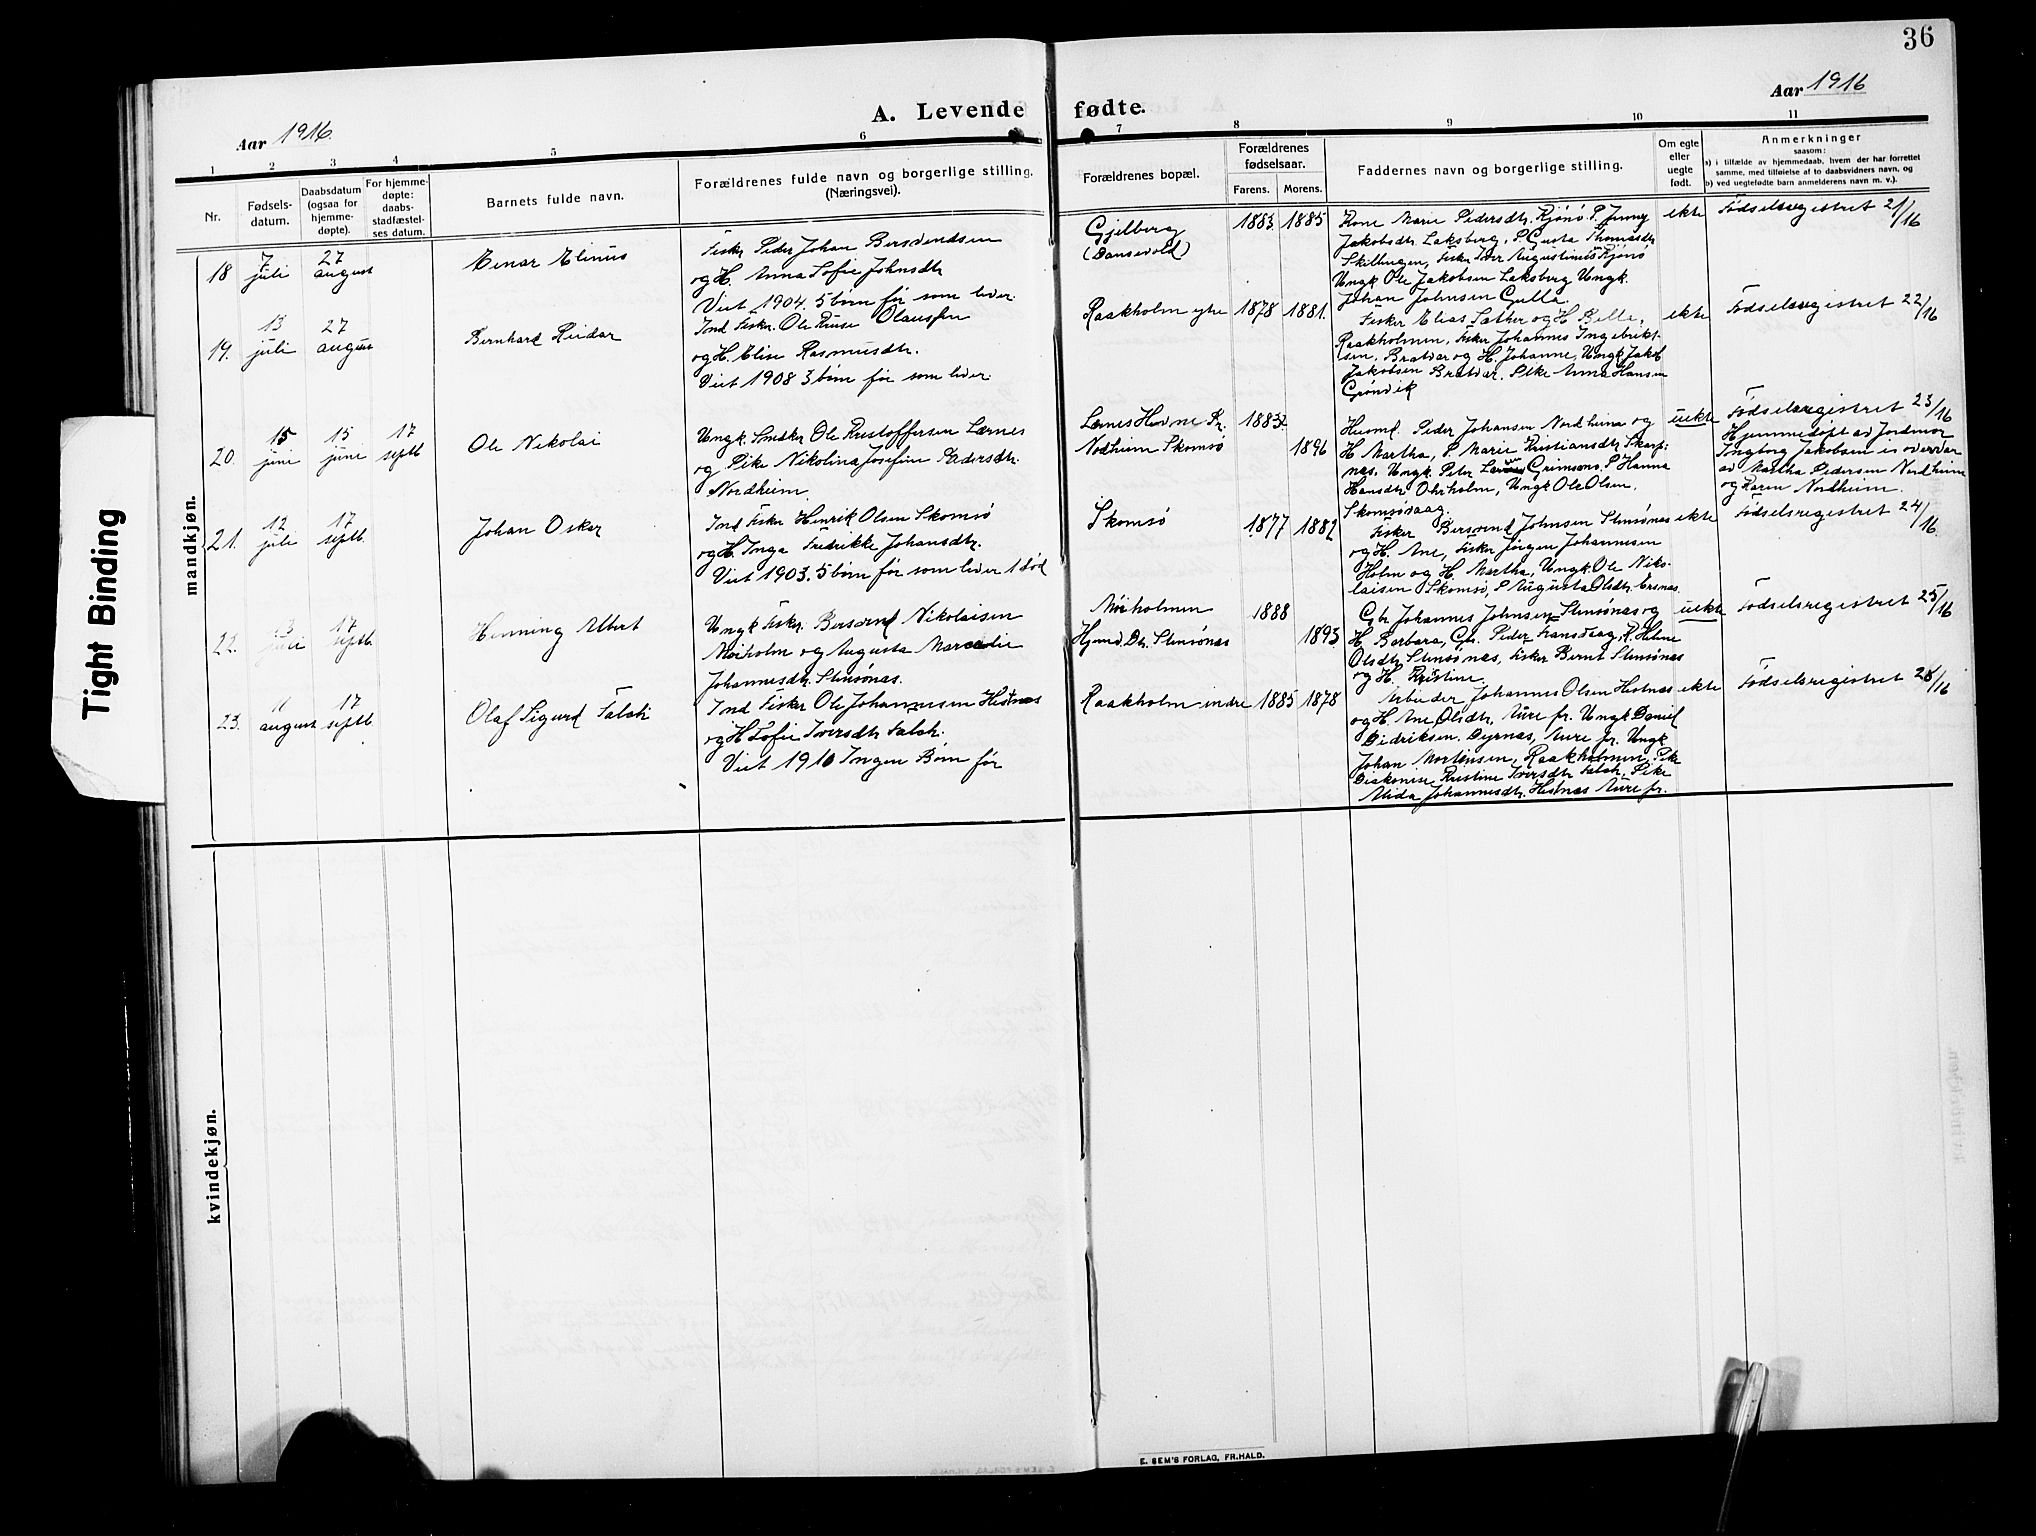 36
Aar 1916.
A. Levende fødte.
Aar 1916
1 2 3 4 5 6 7 8 9 10 11
Nr.
Fødsels-
datum.
Daabsdatum
(ogsaa for
hjemme-
døpte).
For hjemme-
døpte:
daabs-
stadfæstel-
ses datum.
Barnets fulde navn.
Forældrenes fulde navn og borgerlige stilling.
(Næringsvei).
Forældrenes bopæl.
Forældrenes
fødselsaar.
Farens. Morens.
Faddernes navn og borgerlige stilling.
Om egte
eller
uegte
født.
Anmerkninger
saasom:
a) i tilfælde av hjemmedaab, hvem der har forrettet
samme, med tilføielse af to daabsvidners navn, og
b) ved uegtefødte barn anmelderens navn m. v.).
mandkjøn.
18
7
juli
27
august
Einar Elinus
Fisker Peder Johan Bersvendsen
og H. Anna Sofie Johnsdtr
Viet 1904. 5 børn før som lever.
Gjelberg
(Dansevold)
1883. 1885
Kone Marie Pedersdtr. Kjønø. P. Jenny
Jakobsdtr. Laksberg, P. Gusta Thomasdtr
Skillingen, Fisker Iver Augustinus Kjønø
Ungk Ole Jakobsen Laksberg Ungk.
Johan Johnsen Gulla.
ekte
Fødselsregistret 21/16
19.
13
juli
27
august
Bernhard Reidar
Ind Fisker. Ole Ruse Olaussen
og H. Elise Rasmusdtr.
Viet 1908 3 børn før som lever.
Raakholm ytre 1878 1881.
Fisker Elias Sæther og H Belle,
Raakholmen, Fisker Johannes Ingebrikt-
sen, Bratvær og H. Johanne, Ungk Jakob
Jakobsen Bratvær. Pike Anna Hansen
Grønvik
ekte
Fødselsregistret 22/16
20.
15
juni
15
juni
17
septb
Ole Nikolai
Ungk. Smeder Ole Kristoffersen Lærnes
og Pike Nikolina Josefine Pedersdtr.
Nordheim.
Lærnes Hevne Pr.
Nodheim Skomsø
1883
1896
Husmd. Peder Johansen Nordheim og
H Martha, P Marie Kristiansdtr Skarp-
nes. Ungk. Peter Grimsøns. P Hanna
Hansdtr Ohrholm, Ungk Ole Olsen.
Skomsøvaag.
uekte
Fødselsregistret 23/16
Hjemmedøpt av Jordmor
Ingborg Jakobsen i overvær
av Martha Pedersen Nordheim
og Karen Nordheim.
21.
12
juli
17
septb.
Johan Oskar
Ind Fisker Henrik Olsen Skomsø
og H. Inga Fredrikke Johansdtr.
Viet 1903. 5 børn før som lever 1 død
Skomsø
1877 1882
Fisker Bersvend Johnsen Stensønes
og H. Ane, Fisker Jørgen Johannesen
Holm og H. Martha, Ungk. Ole Nik-
laisen Skomsø, P Augusta Olsdtr. Ersnæs.
ekte
Fødselsregistret 24/16.
22.
13
juli
17
septb.
Henning Albert
Ungk Fisker. Bersvend Nikolaisen
Moiholm og Augusta Marcedie
Johannesdtr. Stensønas.
Moiholmen
Hjemd. Dtr. Stensønas
1888
1893
Gbr. Johannes Johnsen Stensønas og
H. Barbara, Gbr. Peder Fransvaag, K. Heline
Olsdtr Stensønes, Fisker Bernt Stensønas
og H. Kristine.
uekte
Fødselsregistret 25/16
23.
11
august
17
septb
Olaf Sigurd Falch
Ind Fisker Ole Johannesen Hestnes
og H Sofie Iversdtr. Falch.
Viet 1910 Ingen Børn før
Raakholm indre 1885 1878
Arbeider Johannes Olsen Hestnæs
og H. Ane Olsdtr, Aure pr. Ungk Daniel
Didriksen. Dyrnæs, Aure pr. Ungk
Johan Mortensen, Raakholmen, Pike
Diakonise Kristine Iversdtr Falch, Pike
Alida Johannesdtr. Hestnæs Aure pr.
ekte
Fødselsregistret 26/16
kvindekjøn.
E. SEM'S FORLAG, FR.HALD.
Tight Binding